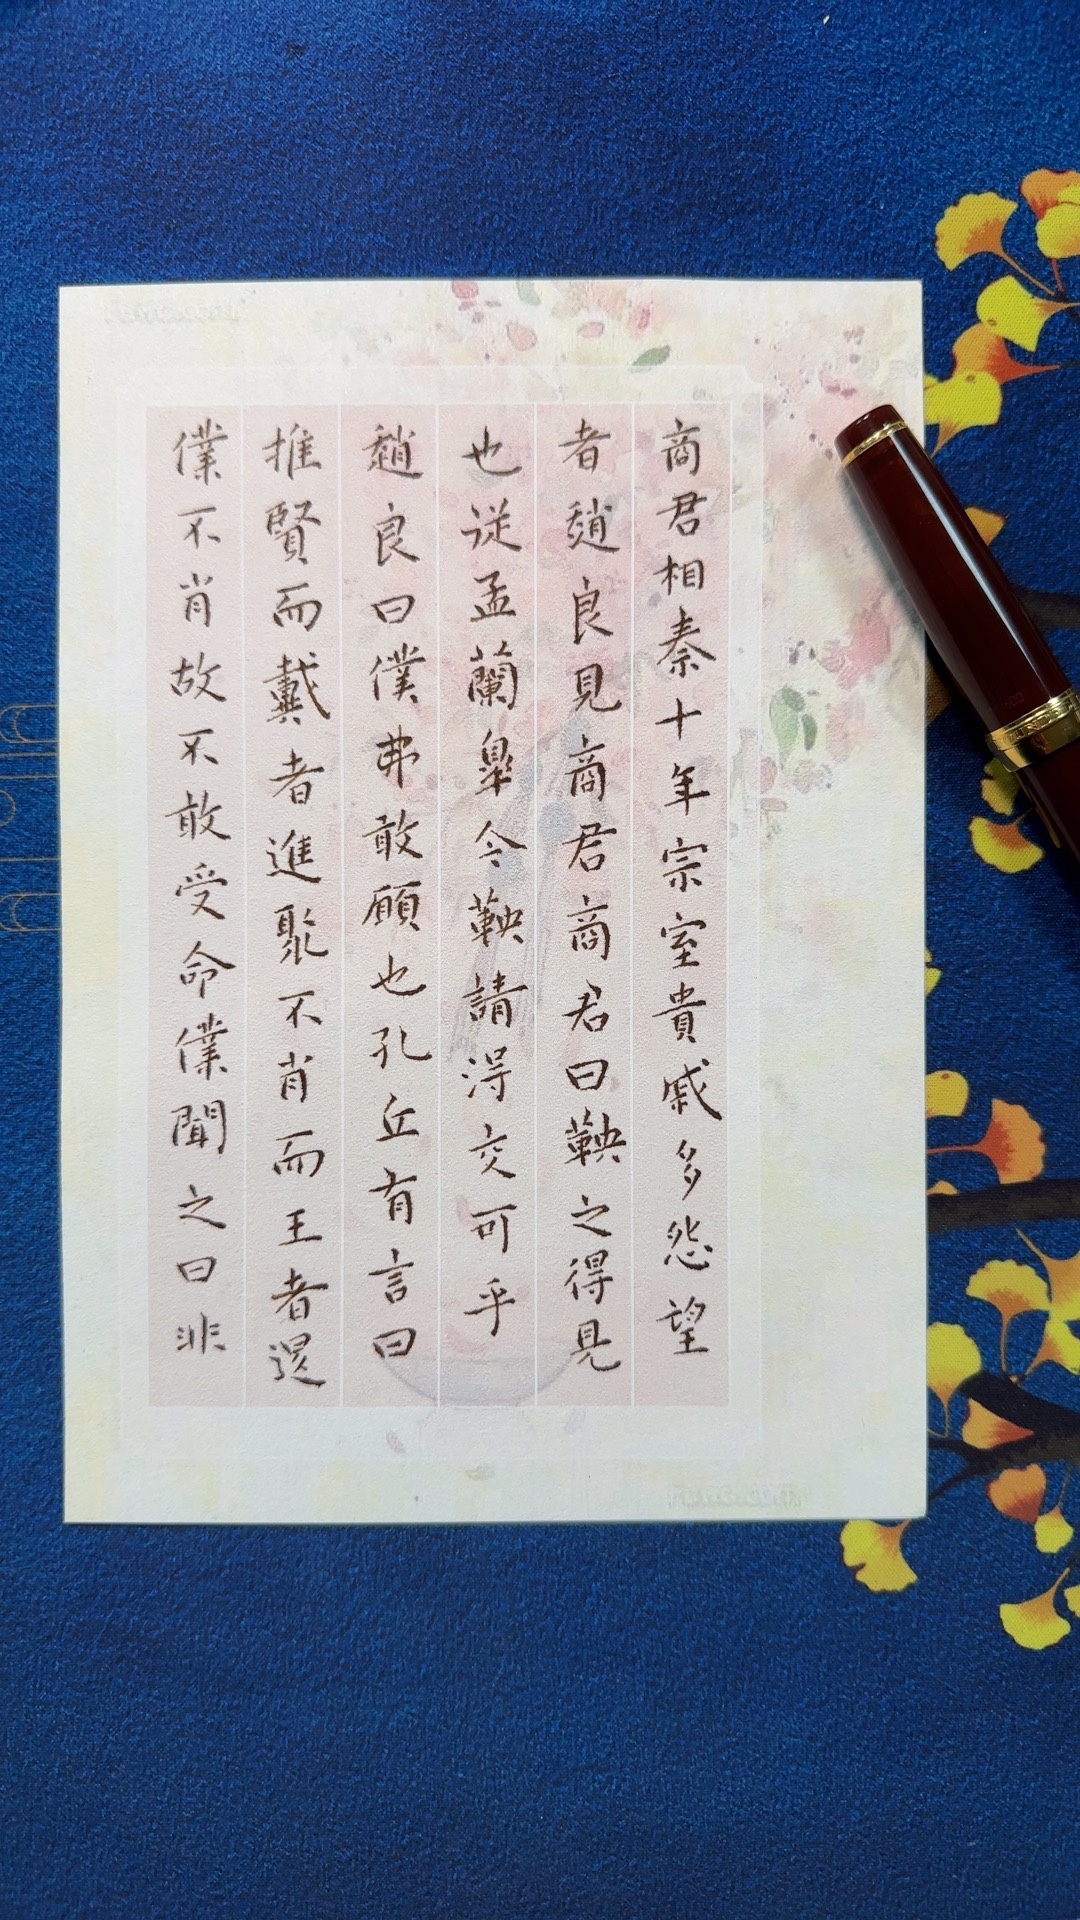 商君相秦十年宗室貴戚多怨望
者趙良見商君商君曰鞅之得見
也從孟蘭皋令鞅請得交可乎
趙良曰僕弗敢願也孔丘有言曰
推賢而戴者進聚不肖而王者退
僕不肖故不敢受命僕聞之曰非